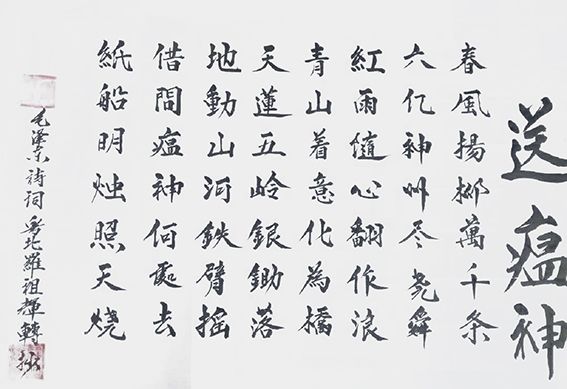 送瘟神
春風揚柳萬千条
六亿神州尽尧舜
紅雨隨心翻作浪
青山着意化為橋
天蓮五岭銀鋤落
地動山河鉄臂摇
借問瘟神何處去
紙船明烛照天烧
毛澤东詩詞 粤北羅祖輝轉抄